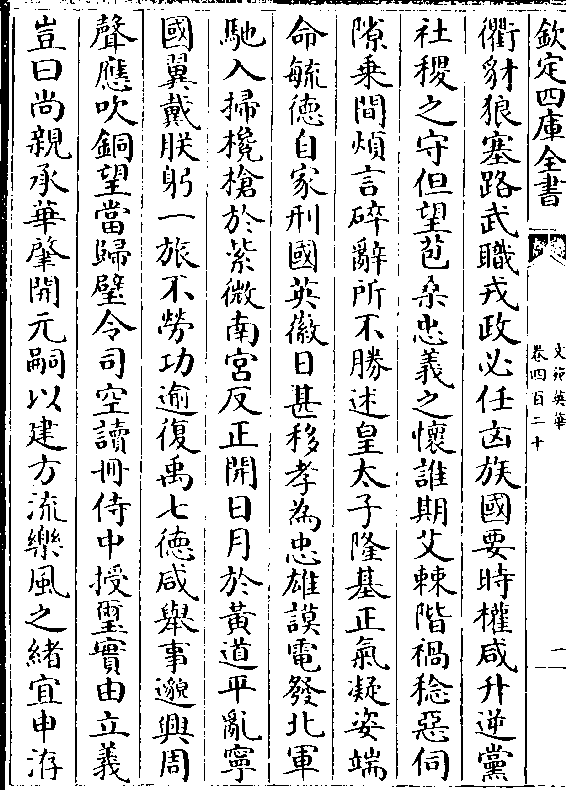 欽定四庫全書
文苑英華
卷四百二十
二
衢豺狼塞路武職戎政必任凶族國要時權咸升逆黨
社稷之守但望苞桑忠義之懷誰期艾棘階禍稔惡伺
隙乗間煩言碎辭所不勝述皇太子隆基正氣凝姿端
命毓德自家刑國英徽日甚移孝為忠雄謨電發北軍
馳入掃欃槍於紫微南宫反正開日月於黄道平亂寧
國翼戴朕躬一旅不勞功逾復禹七德咸舉事邈興周
聲應吹銅望當歸璧令司空讀冊侍中授璽實由立義
豈曰尚親承華肇開元嗣以建方流樂風之緒宜申洊